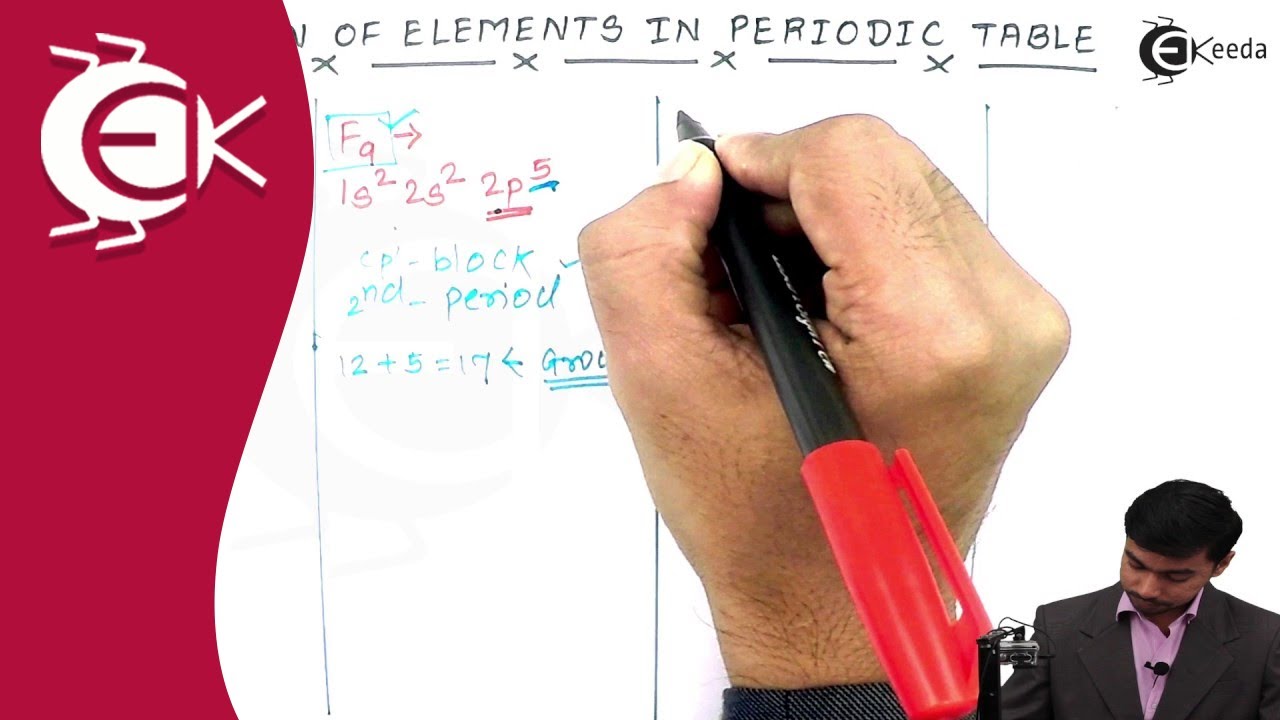 N OF ELEMENTS IN PERIODIC TABLE
EKeeda
EK
F9 →
1s² 2s² 2p⁵
'p'-block
2nd - period
12 + 5 = 17 ←